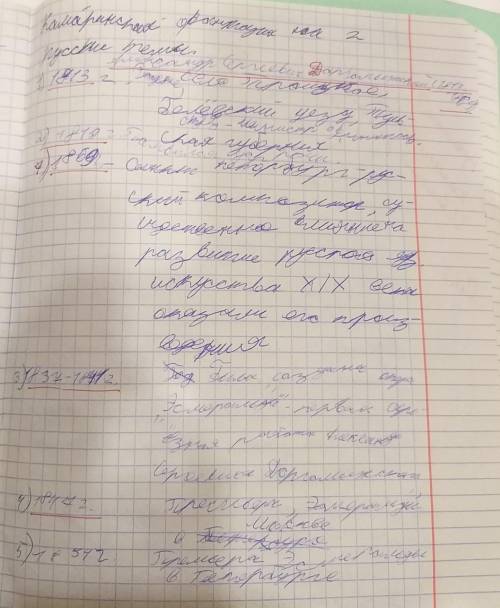 Камаринская фантазия на 2
русские темы.
Александр Сергеевич Даргомыжский (1813
1869
1) 1813 г село Троицкое,
Белевский уезд Туль-
ская губерния
2) 1819 -
1869 -
Санкт петербург - ру-
ский композитор, су-
щественно влияние на
развитие русского
искусства XIX века
оказали его произ-
ведения
3) 1837-1841г. Была создана опера
"Эсмеральда" - первая серь-
ёзная работа Александр
Сергеевича Даргомыжского
4) 1847г. Премьера, Эсмеральды
в Москве
5) 1851г Премьера Эсмеральды
в Петербурге